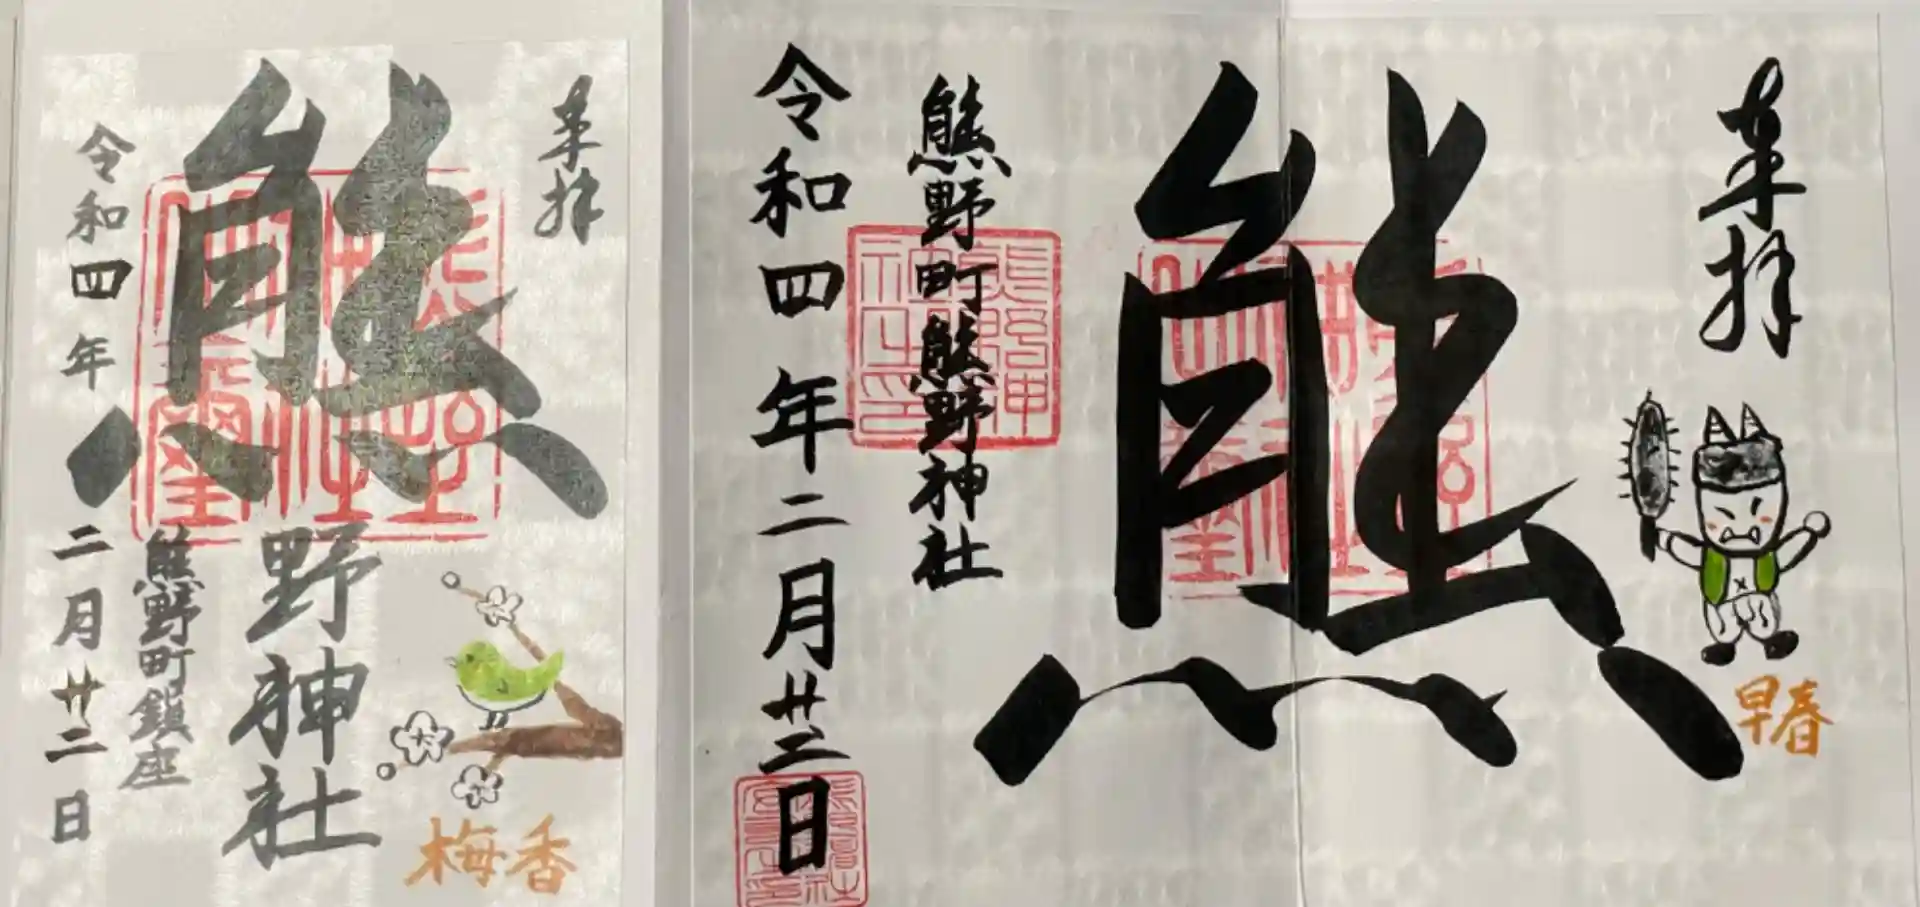 奉拝
熊野神社
熊野町鎮座
令和四年二月廿二日
梅香
奉拝
熊
早春
熊野町熊野神社
熊野神社之印
令和四年二月廿二日